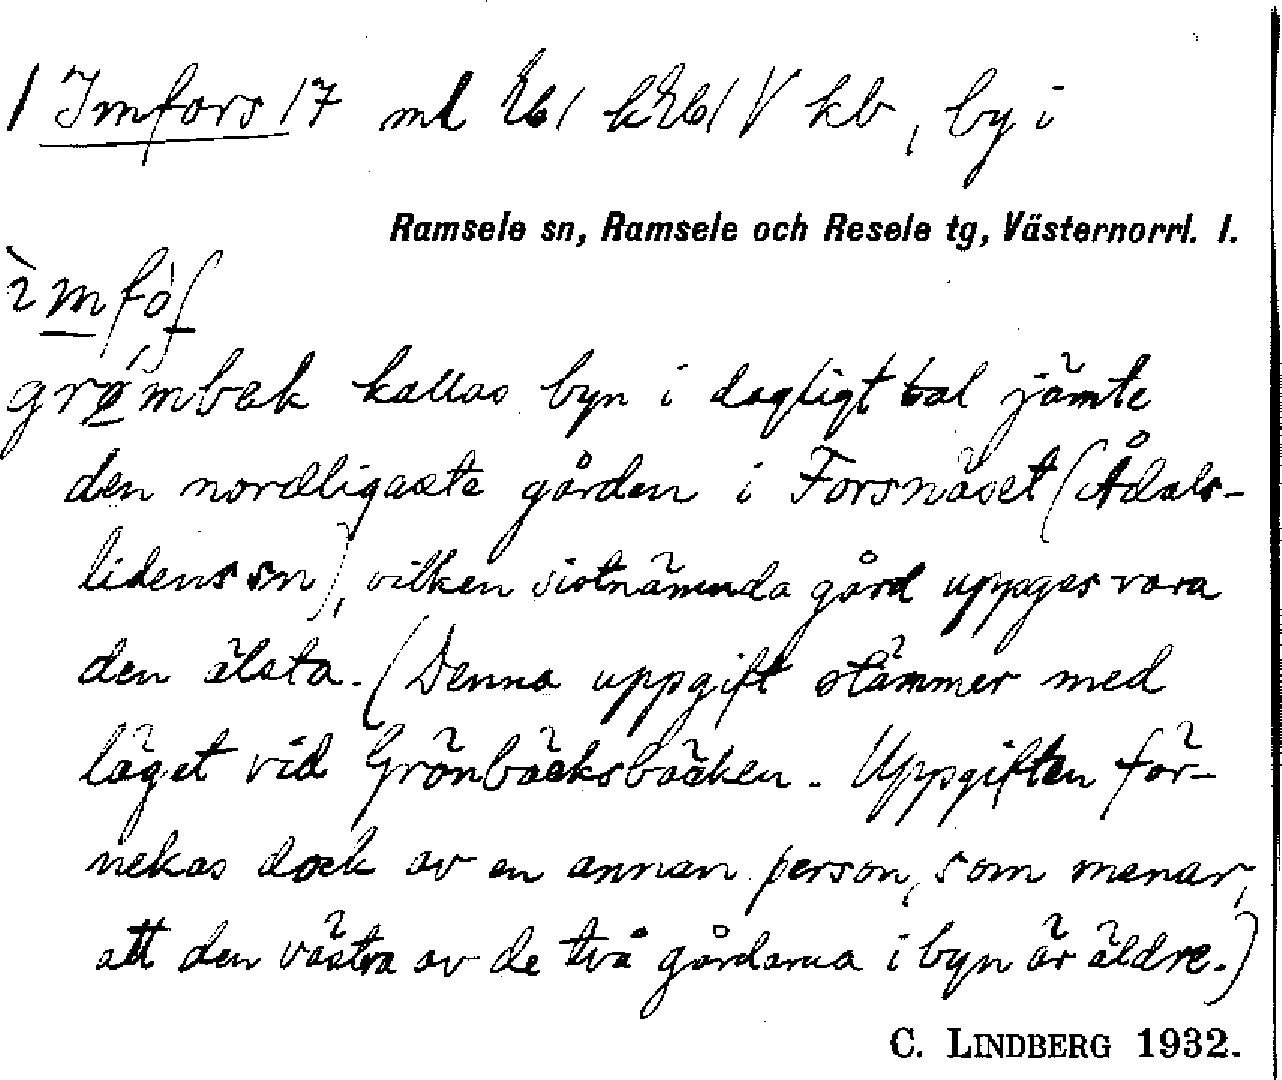 / Imfors / 7 ml Eb/ kEb/ V kb, by i
Ramsele sn, Ramsele och Resele tg, Västernorrl. l.
ìmfòʃ
grømbak kallas byn i dagligt tal jämte
den nordligaste gården i Forsnäset (Ådals-
lidens sn), vilken sistnämnda gård uppges vara
den älsta. (Denna uppgift stämmer med
läget vid Grönbäcksbäcken. Uppgiften för-
nekas dock av en annan person, som menar,
att den västra av de två gårdarna i byn är äldre.)
C. LINDBERG 1932.